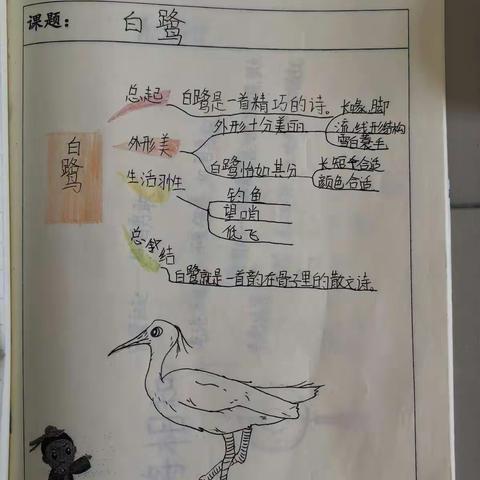 课题：白鹭
总起 白鹭是一首精巧的诗。
长喙,脚
外形十分美丽
流线形结构
雪白蓑毛
白鹭
外形美
白鹭恰如其分
长短合适
颜色合适
生活习性
钓鱼
望哨
低飞
总结
白鹭就是一首韵在骨子里的散文诗。